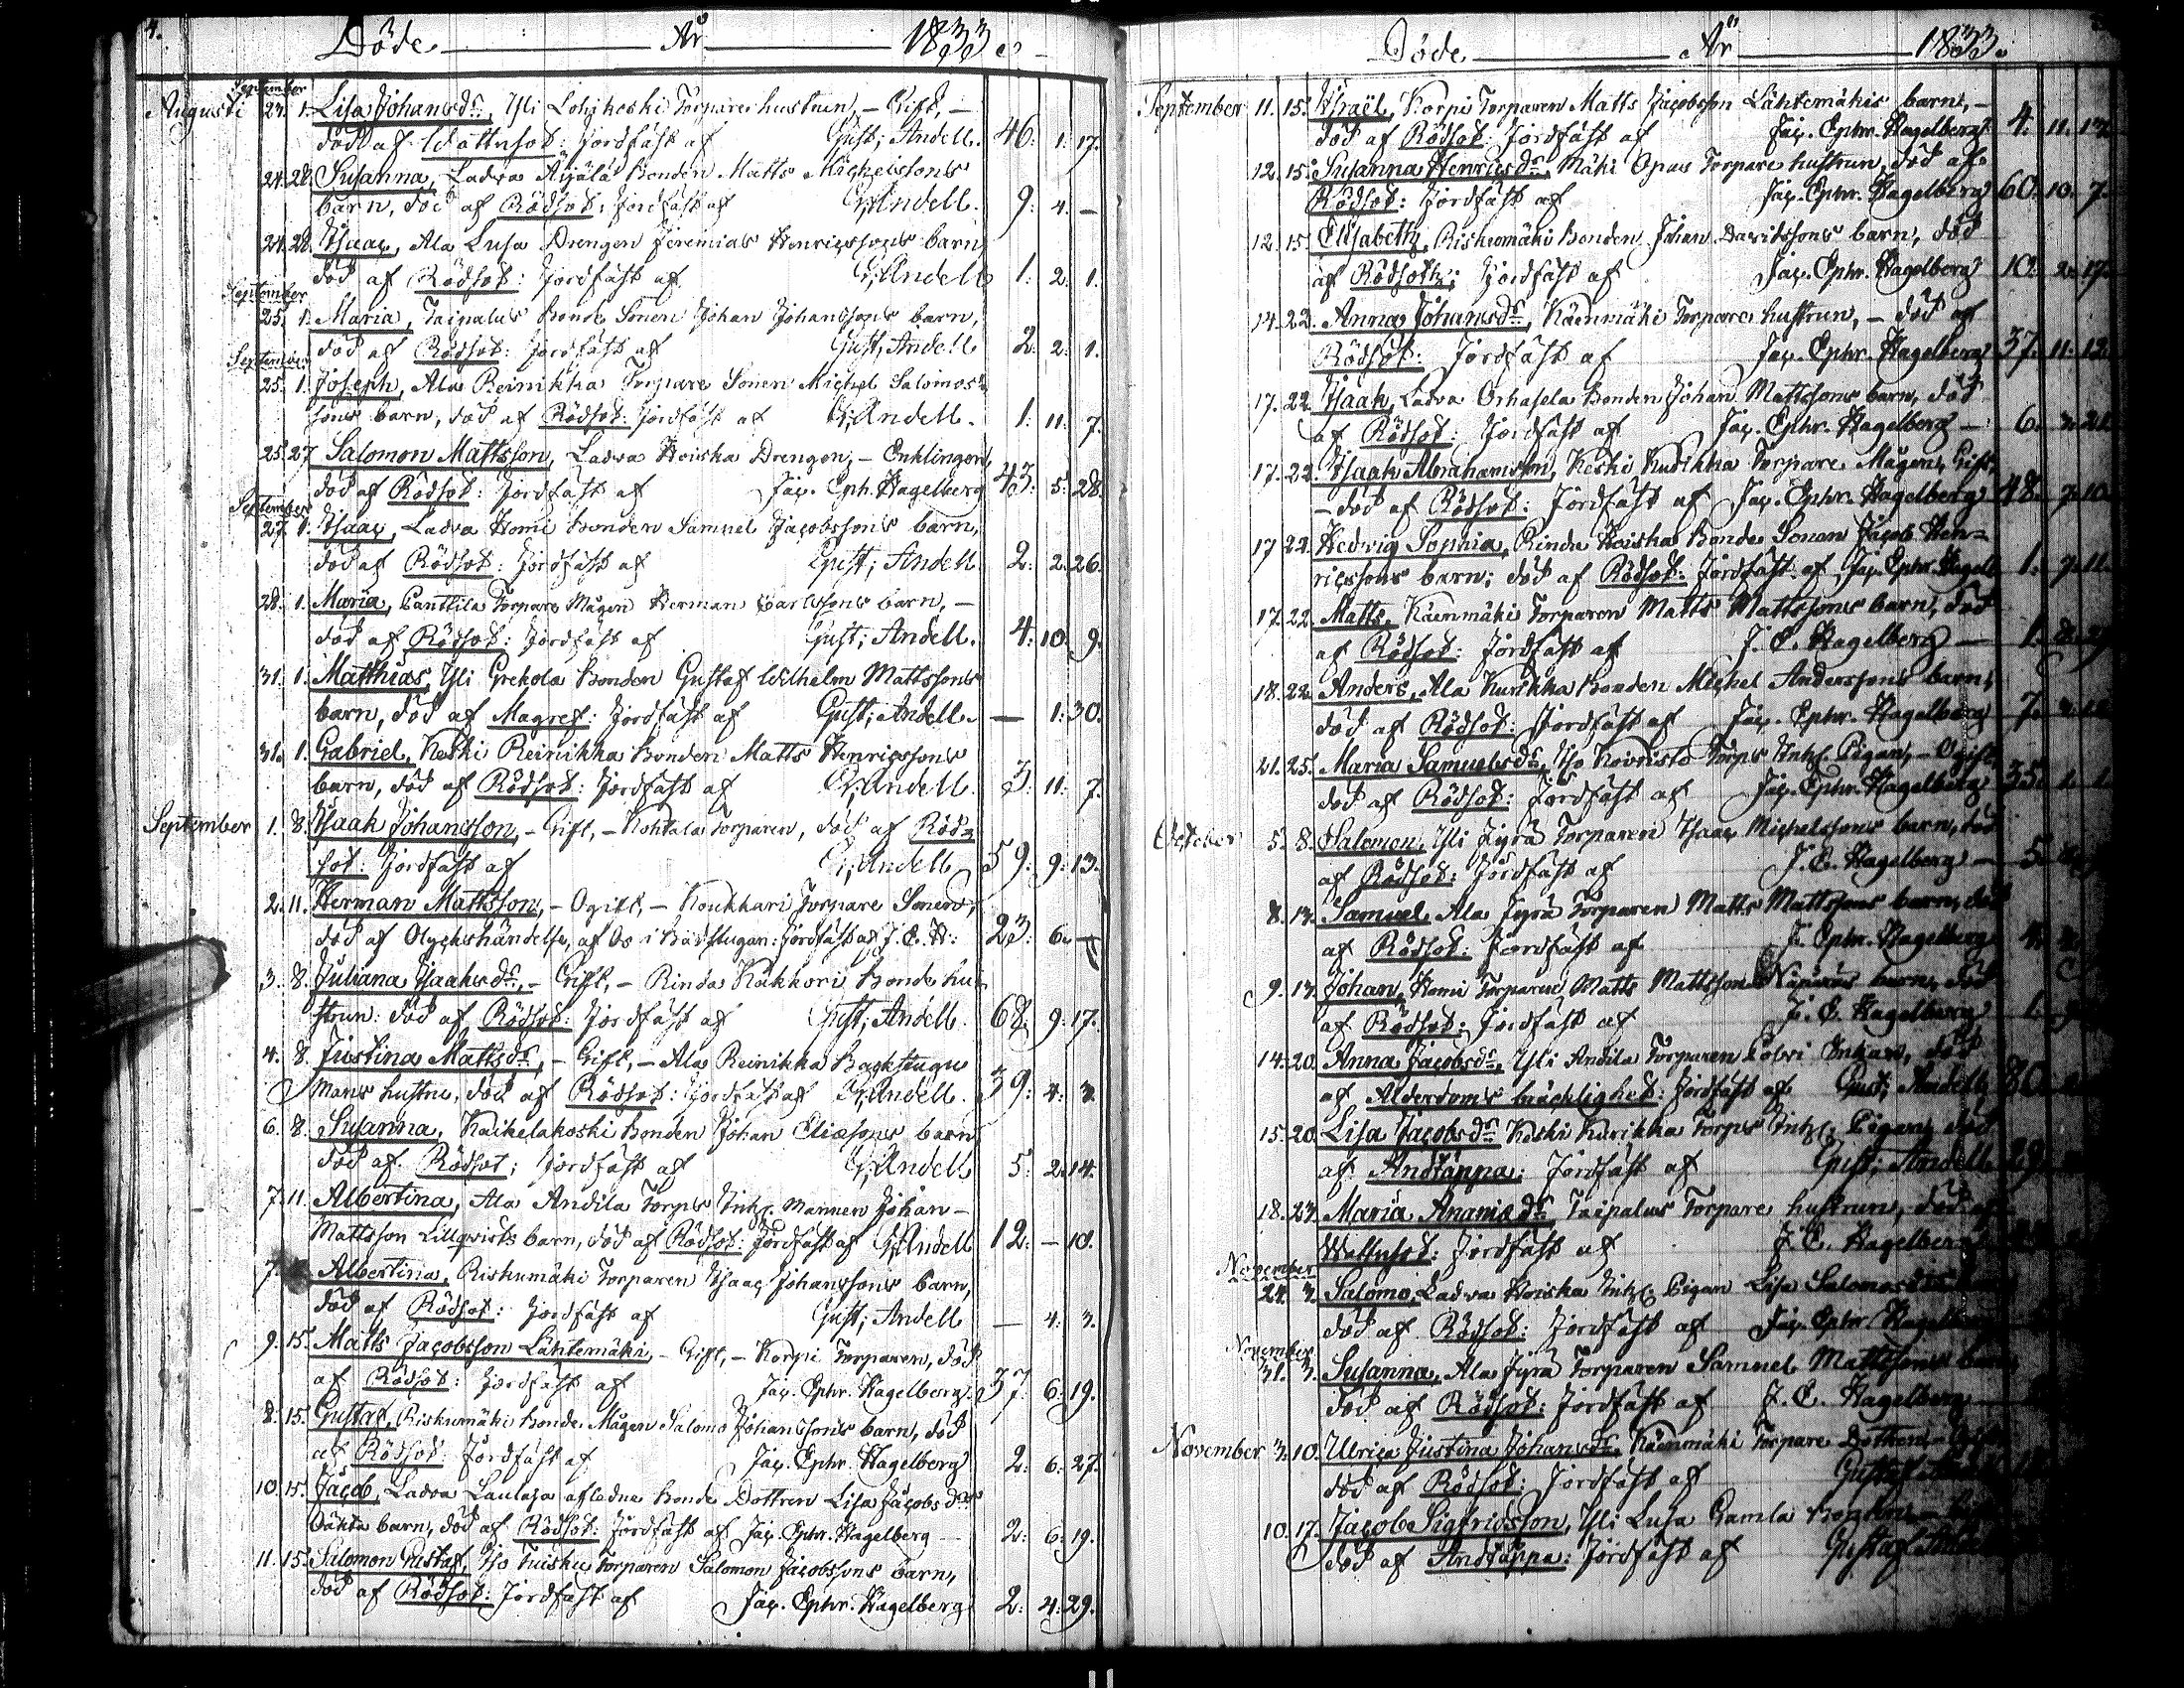 4.
Döde År 1833.
September
Augusti 23. 1. Lisa Johansdr, Yli Lohikoski Torpare hustrun, – Gift, –
död af Wattusot: Jordfäst af Gust; Andell. 46. 1. 17.
24. 28. Susanna, Ladva Äijälä Bonden Matts Michelssons
barn, död af Rödsot: Jordfäst af G; Andell. 9. 4. –
24. 28. Isaac, Ala Lusa Drengen Jeremias Henricssons barn
död af Rödsot: Jordfäst af G; Andell 1. 2. 1.
September
25. 1. Maria, Taipalus Bonde Sonen Johan Johanssons barn,
död af Rödsot: Jordfäst af Gust; Andell 2. 2. 1.
September
25. 1. Joseph, Ala Reinikka Torpare Sonen Michel Salomos
sons barn, död af Rödsot: Jordfäst af G; Andell. 1. 11. 7.
25. 27. Salomon Mattsson, Ladva Hoiska Drengen, – Enklingen,
död af Rödsot: Jordfäst af Jac. Eph. Hagelberg 43. 5. 28.
September
27. 1. Isaac, Ladva Homi Bonden Samuel Jacobssons barn,
död af Rödsot: Jordfäst af Gust; Andell 2. 2. 26.
28. 1. Maria, Panttila Torpare Mågen Herman Carlssons barn, –
död af Rödsot: Jordfäst af Gust; Andell. 4. 10. 9.
31. 1. Matthias, Yli Grekola Bonden Gustaf Wilhelm Mattssons
barn, död af Magref: Jordfäst af Gust; Andell. – 1. 30.
31. 1. Gabriel, Keski Reinikka Bonden Matts Henricssons
barn, död af Rödsot: Jordfäst af G; Andell. 3. 11. 7.
September 1. 8. Isaak Johansson, – Gift, – Kohtala Torparen, död af Röd=
sot: Jordfäst af G; Andell 59. 9. 13.
2. 11. Herman Mattsson, – Ogift, – Koukkari Torpare Sonen,
död af Olyckshändelse, af Os i Badstugan: Jordfäst af J. E. H: 23. 6. –
3. 8. Juliana Isaaksdr, – Gift, – Rinda Käkkori Bonde hu=
strun: död af Rödsot: Jordfäst af Gust; Andell. 68. 9. 17.
4. 8. Justina Mattsdr, – Gift, – Ala Reinikka Backstugu
mans hustru, död af Rödsot: Jordfäst af G; Andell. 39. 4. 3.
6. 8. Susanna, Kaikelakoski Bonden Johan Eliæsons barn
död af Rödsot; Jordfäst af G; Andell 5. 2. 14.
7. 11. Albertina, Ala Andila Torps Inh. Mannen Johan –
Mattsson Lillqvists barn, död af Rödsot: Jordfäst af G; Andell 12. – 10.
7. Albertina, Riskumäki Torparen Isaac Johanssons barn,
död af Rödsot: Jordfäst af Gust; Andell – 4. 3.
9. 15. Matts Jacobsson Lähtemäki, – Gift, – Korpi Torparen, död
af Rödsot: Jordfäst af Jac. Ephr. Hagelberg. 37. 6. 19.
8. 15. Gustaf, Riskumäki Bonde Mågen Salomo Johanssons barn, död
af Rödsot Jordfäst af Jac. Ephr. Hagelberg 2. 6. 27.
10. 15. Jacob, Ladva Laulaja aflidne Bonde Dottren Lisa Jacobsdrs
oäkta barn, död af Rödsot: Jordfäst af Jac. Ephr. Hagelberg – 2. 6. 19.
11. 15. Salomon Gustaf, Iso Tuisku Torparen Salomon Jacobssons barn,
död af Rödsot: Jordfäst af Jac. Ephr. Hagelberg 2. 4. 29.
Döde År 1833.
September 11. 15. Israël, Korpi Torparen Matts Jacobsson Lähtemäkis barn, –
död af Rödsot: Jordfäst af Jac. Ephr. Hagelberg 4. 11.
12. 15. Susanna Henricsdr, Mäki Opas Torpare hustrun, död af
Rödsot: Jordfäst af Jac. Ephr. Hagelberg 60. 10. 7.
12. 15. Elisabeth, Riskumäki Bonden Johan Davidssons barn, död
af Rödsoth; Jordfäst af Jac. Ephr. Hagelberg 10. 2. 17.
14. 22. Anna Johansdr, Käenmäki Torpare hustrun, – död af
Rödsot: Jordfäst af Jac. Ephr. Hagelberg 37. 11. 12.
17. 22. Isaak, Ladva Orhasela Bonden Johan Mattssons barn, död
af Rödsot: Jordfäst af Jac. Ephr. Hagelberg – 6.
17. 22. Isaak Abrahamsson, Keski Kurikka Torpare Mågen, Gift,
– död af Rödsot: Jordfäst af Jac. Ephr. Hagelberg 48. 7. 10.
17. 22. Hedvig Sophia, Rinda Hoiska Bonde Sonen Jacob Hen=
ricssons barn; död af Rödsot: Jordfäst af Jac. Ephr. Hagelb 1. 7. 11.
17. 22. Matts, Käenmäki Torparen Matts Mattssons barn, död
af Rödsot: Jordfäst af J. E. Hagelberg – 1. 8.
18. 22. Anders, Ala Kurikka Bonden Michel Anderssons barn,
död af Rödsot: Jordfäst af Jac. Ephr. Hagelberg 7.
21. 25. Maria Samuelsdr, Iso Koivisto Torps Inh. Pigan, – Ogift,
död af Rödsot: Jordfäst af Jac. Ephr. Hagelberg 35. 1. 1.
October 5. 8. Salomon, Yli Jyrä Torparen Isaac Michelssons barn, död
af Rödsot: Jordfäst af J. E. Hagelberg – 5.
8. 13. Samuel, Ala Jyrä Torparen Matts Mattssons barn, död
af Rödsot: Jordfäst af J. Ephr. Hagelberg 4.
9. 13. Johan, Homi Torparen Matts Mattsson barn, död
af Rödsot: Jordfäst af J. E. Hagelberg 1.
14. 20. Anna Jacobsdr, Yli Andila Torparen Enkan, död
af Alderdoms bräcklighet: Jordfäst af Gust; Andell 80.
15. 20. Lisa Jacobsdr Keski Kurikka Torps Inh. Pigan, död
af Andtäppa: Jordfäst af Gust; Andell 29.
18. 23. Maria Ananiædr Taipalus Torpare hustrun, död af
Wattusot: Jordfäst af J. E. Hagelberg
November
24. 3. Salomo, Ladva Hoiska Inh. Pigan Lisa Salomosdrs
död af Rödsot: Jordfäst af Jac. Ephr. Hagelberg
November
31. 3. Susanna, Ala Jyrä Torparen Samuel Mattssons
död af Rödsot: Jordfäst af J. E. Hagelberg
November 3. 10. Ulrica Justina Johansdr, Käenmäki Torpare Dottren
död af Rödsot: Jordfäst af Gustaf
10. 17. Jacob Sigfridsson, Yli Lusa Gamla
död af Andtäppa: Jordfäst af Gustaf